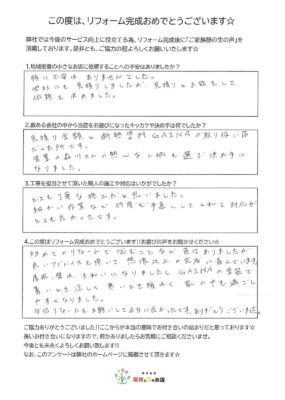 この度は、リフォーム完成おめでとうございます☆
弊社では今後のサービス向上に役立てる為、リフォーム完成後に「ご家族様の生の声」を
頂戴しております。是非とも、ご協力の程よろしくお願いいたします☆
1.地域密着の小さなお店に依頼することへの不安はありましたか？
特に不安は、ありませんでした。
他社にも、見積りしましたが、見積りとお話をして
依頼を決めました。
2.数ある会社の中から当店をお選びになったキッカケや決め手は何でしたか？
見積り金額と断熱塗料GAINAの取り扱い店
だった所です。
営業の さんの熱心な人柄も選ぶ決め手に
なりました。
3.工事を担当させて頂いた職人の施工や対応はいかがでしたか？
とても丁寧な施工だと思いました。
細かい作業など何度も手直ししてくれて対応が
とても良かったです。
4.この度はリフォーム完成おめでとうございます！お喜びの声をお聞かせください☆
初めてのリフォームで悩むことなど色々ありましたが
良いアドバイスも頂いて、想像以上の完成に喜んでいます。
屋根、壁は、きれいになりましたし GAINAの塗装で
暑いときは涼しく、寒いときは暖かく、家の中も過ごし
やすくなりました。
今回リフォームをお願いして本当に良かったです。ありがとうございました。
ご協力ありがとうございました!!ここからが本当の意味でお付き合いの始まりだと思っております☆
長いお付き合いになりますので、何かありましたらお気軽にご相談くださいませ。
今後とも末永くよろしくお願い致します!!
なお、このアンケートは弊社のホームページに掲載させて頂きます☆
屋根と壁のお店